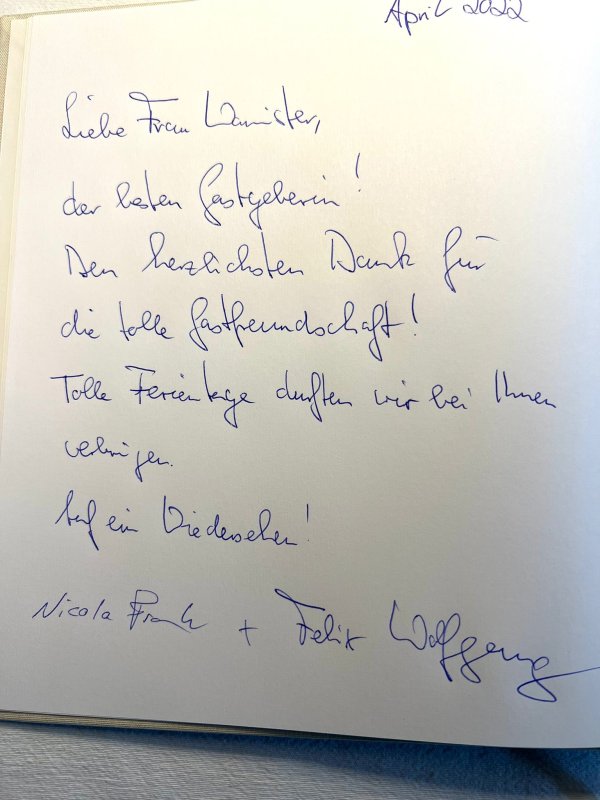 April 2022
Liebe Frau Wannister,
der besten Gastgeberin!
Den herzlichsten Dank für
die tolle Gastfreundschaft!
Tolle Ferientage durften wir bei Ihnen
verbringen.
Auf ein Wiedersehen!
Nicola Frank + Felix Wolfgang